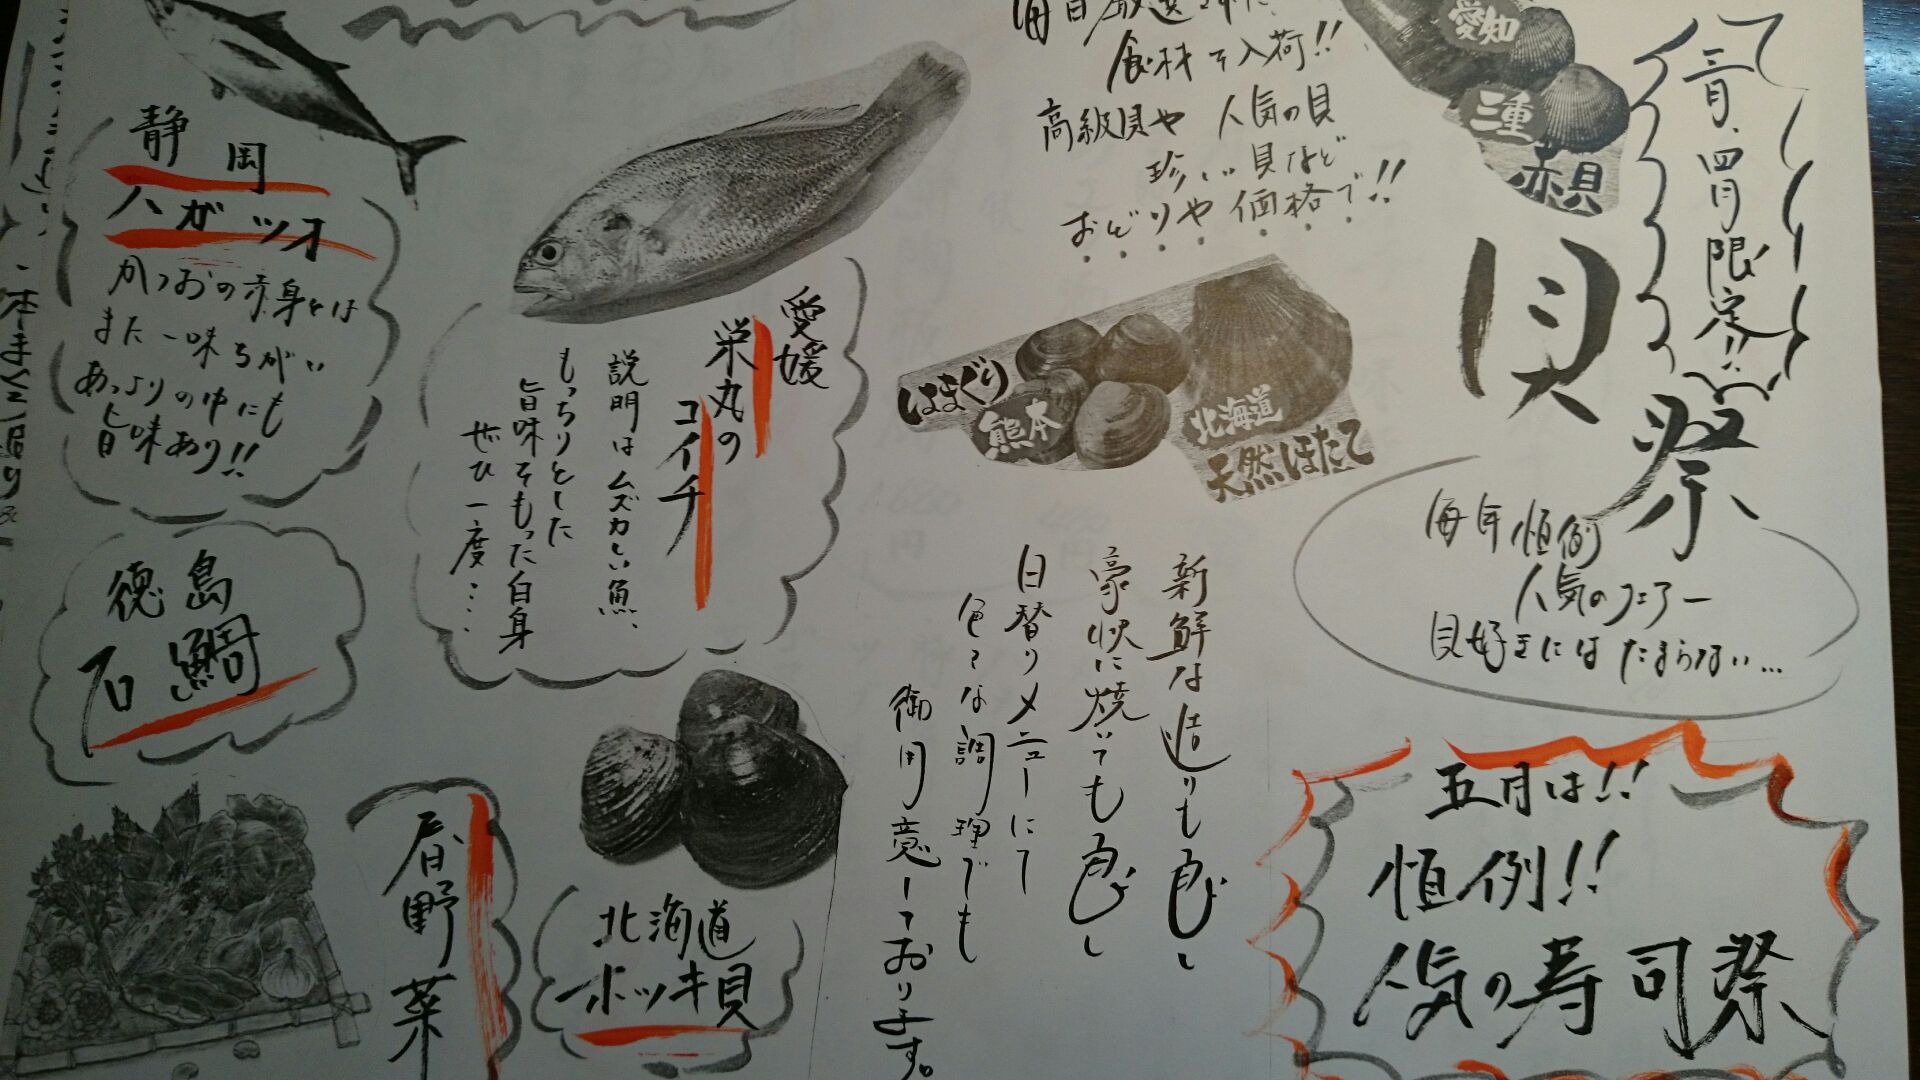 三月、四月限定!!
貝祭
毎年恒例
人気のフェアー
貝好きにはたまらない…
五月は!!
恒例!!
人気の寿司祭
愛知
三重
赤貝
食材を入荷!!
高級貝や 人気の貝
珍しい貝など
おどりや価格で!!
はまぐり
熊本
北海道
天然ほたて
新鮮な造りも良し
豪快に焼いても良し
日替りメニューにて
色々な調理でも
御用意しております。
愛媛
栄丸の
コイチ
説明はムズカしい魚、
もっちりとした
旨味をもった白身
ぜひ一度・・・・
北海道
ホッキ貝
春野菜
静岡
ハガツオ
かつおの赤身とは
また一味ちがい
あっさりの中にも
旨味あり!!
徳島
石鯛